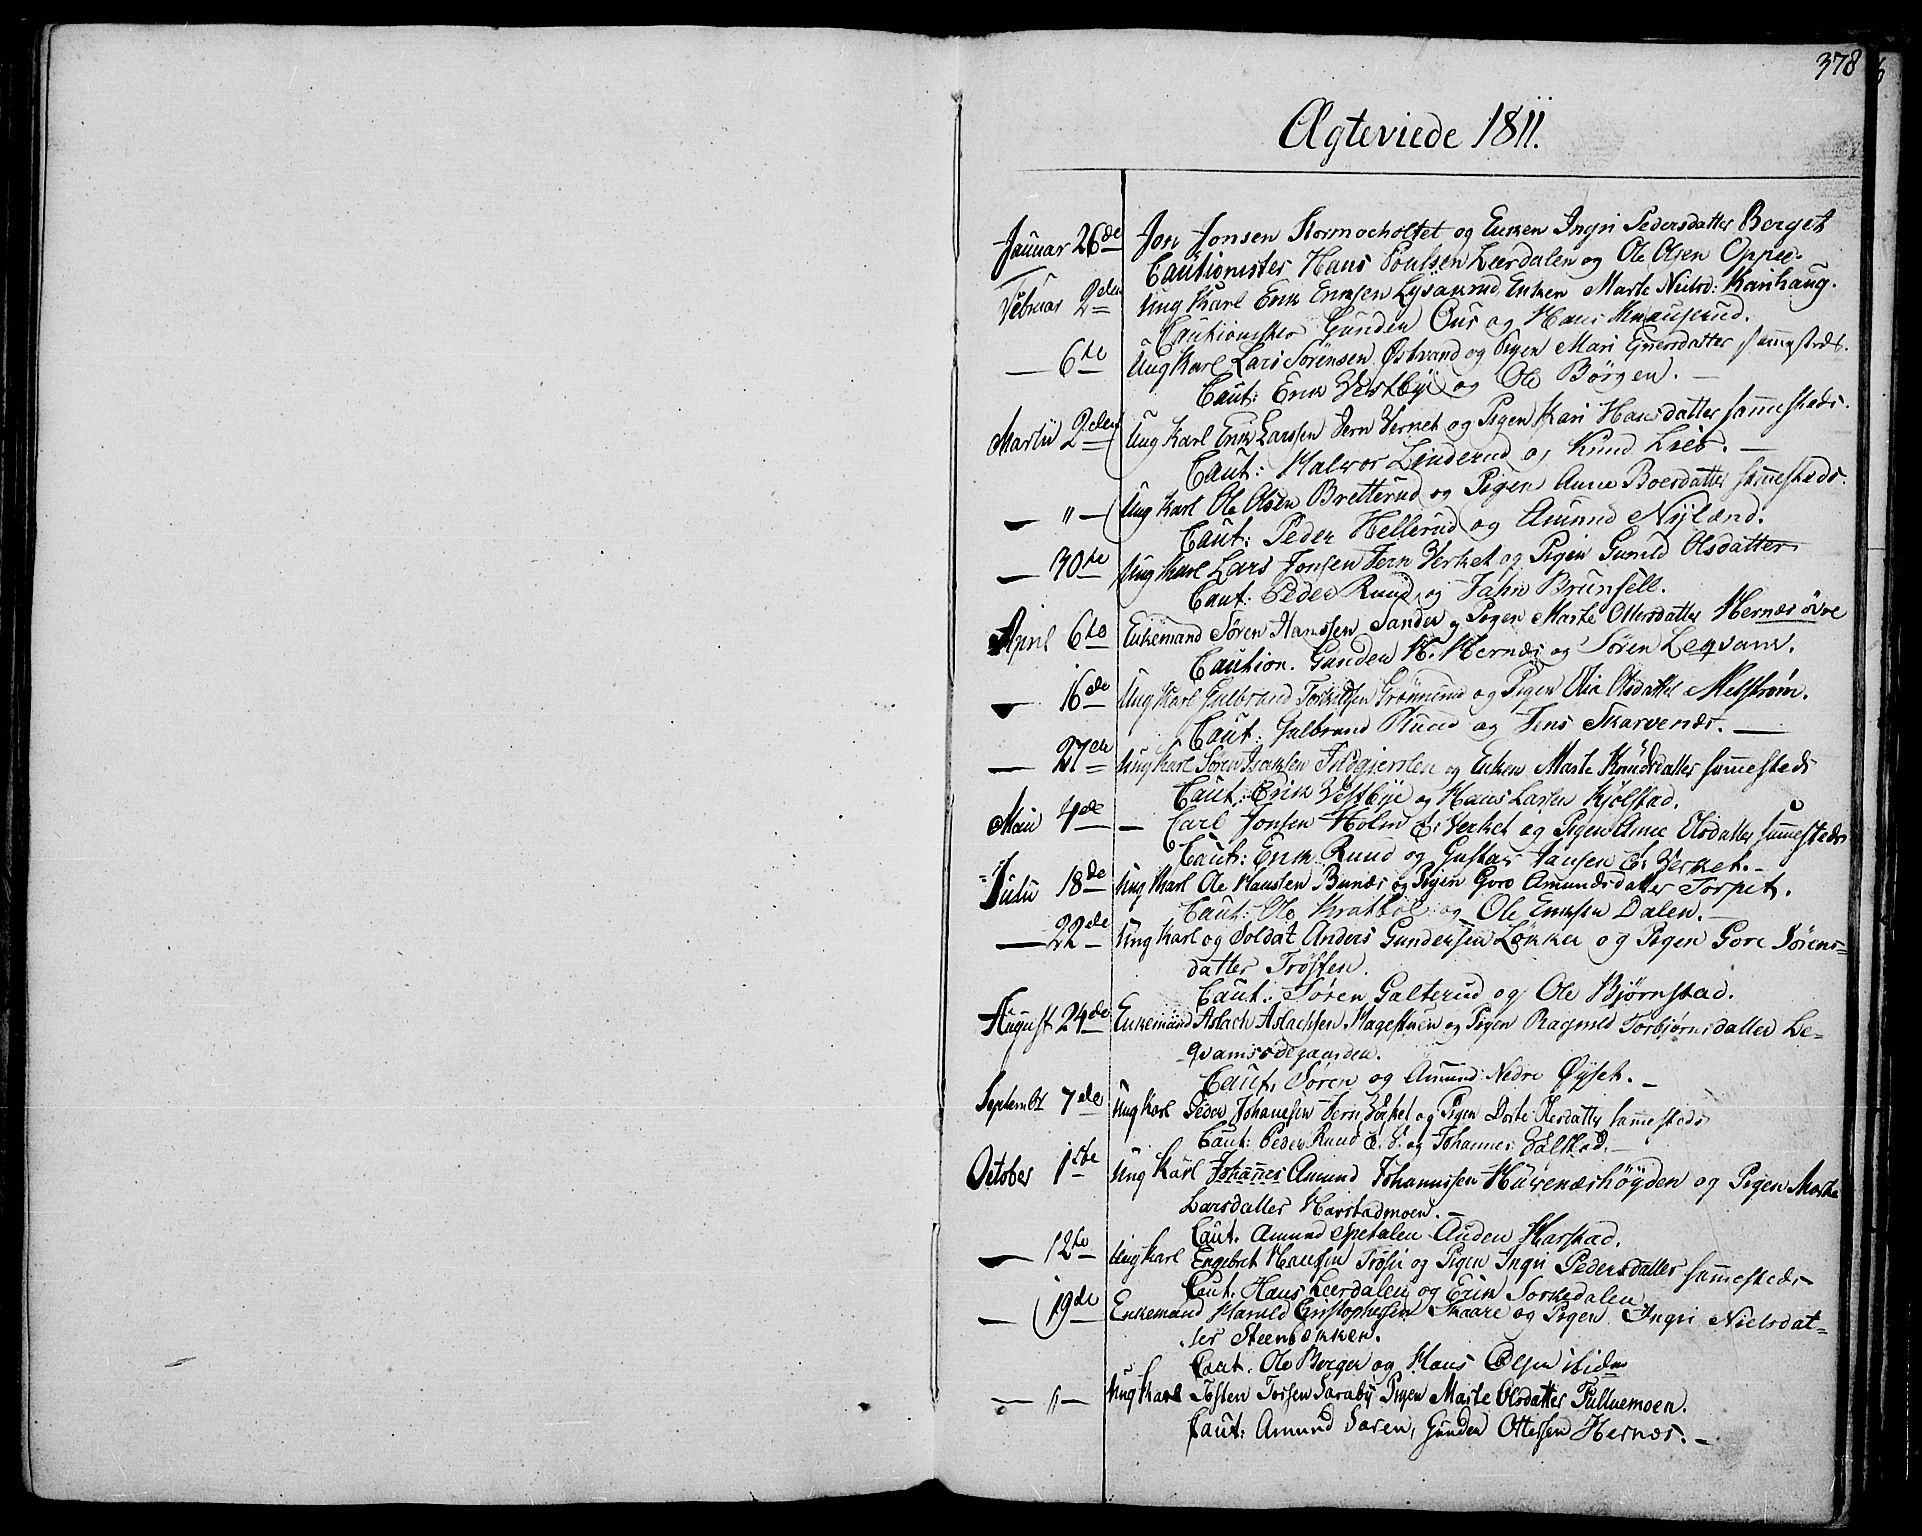 378
Ægteviede 1811.
Januar 26de Jon Jonsen Kormocholtet og Enken Ingri Pedersdatter Berget
Cautionister Hans Poulsen Leerdalen og Ole Olsen Oppee.
Februar 2den Ung Karl Erik Eriksen Lysakrud, Enken Marte Nielsd: Karihaug.
Cautionister Gunder Ous og Hans Knauserud.
— 6te Ung Karl Lars Sörensen Østvand og Pigen Mari Gunersdatter sammesteds.
Caut: Erik Vestbÿe og Ole Börgen. —
Martii 2den Ung Karl Erik Larssen Jern Verket og Pigen Kari Hansdatter sammesteds.
Caut: Halvor Linderud og Knud Lieb. —
— " — Ung Karl Ole Olsen Bretterud og Pigen Anne Boersdatter sammesteds.
Caut: Peder Hellerud og Amund Nÿland.
— 30te Ung Karl Lars Jonsen Jern Verket og Pigen Gunild Olsdatter
Caut: Peder Ruud og Jahn Brunsell.
April 6te Enkemand Sören Hanssen Sander og Pigen Marte Ottersdatter Hernæs övre
Caution. Gunder H. Hernæs og Sören Leqvam.
— 16de Ung Karl Gulbrand Torkildsen Grönnerud og Pigen Olia Olsdatter Melström.
Caut: Gulbrand Ruud og Jens Skarvenæs. —
— 27de Ung Karl Sören Isaksen Ildgjernlen og Enken Marte Knudsdatter sammesteds
Caut: Erik Vestbÿe og Hans Larsen Kjölstad.
Maii 4de — Carl Jonsen Holm E: Verket og Pigen Anne Olsdatter sammesteds
Caut: Erik Ruud og Gustav Jansen E: Verket. —
Julii 18de Ung Karl Ole Hansen Bunæs og Pigen Goro Amundsdatter Torpet.
Caut: Ole Kratböl og Ole Eriksen Dalen. —
— 22de Ung Karl og Soldat Anders Gundersen Løkker og Pigen Gore Sörens=
datter Tröften.
Caut: Sören Galterud og Ole Bjørnstad.
August 24de Enkemand Aslach Aslachsen Hagestuen og Pigen Ragnild Torbjörnsdatter Le=
qvamsödegaarden.
Caut. Sören og Amund: Nedre Øyset. —
September 7de Ung Karl Peder Johanesen Jern Verket og Pigen Dorte sammesteds
Caut: Peder Ruud E. V. og Johannes Valstad. —
October 1ste Ung Karl Johannes Amund Johannissen Huwenæshögden og Pigen Marte
Larsdatter Harstadmoen. —
Caut. Amund Spetalen Auden Harstad.
— 12te Ung Karl Engebret Hansen Tröfti og Pigen Ingri Pedersdatter sammesteds
Caut. Hans Leerdalen og Erik Sorkedalen
— 19de Enkemand Harald Cristophersen Skaare og Pigen Ingri Nielsdat=
ter Steenbekken.
Caut. Ole Berger og Hans Olsen ibidm
— " — Ung Karl Tosten Torsen Saraby Pigen Marte Olsdatter Tullnemoen.
Caut: Amund Saren, Gunder Ottersen Hernæs. —